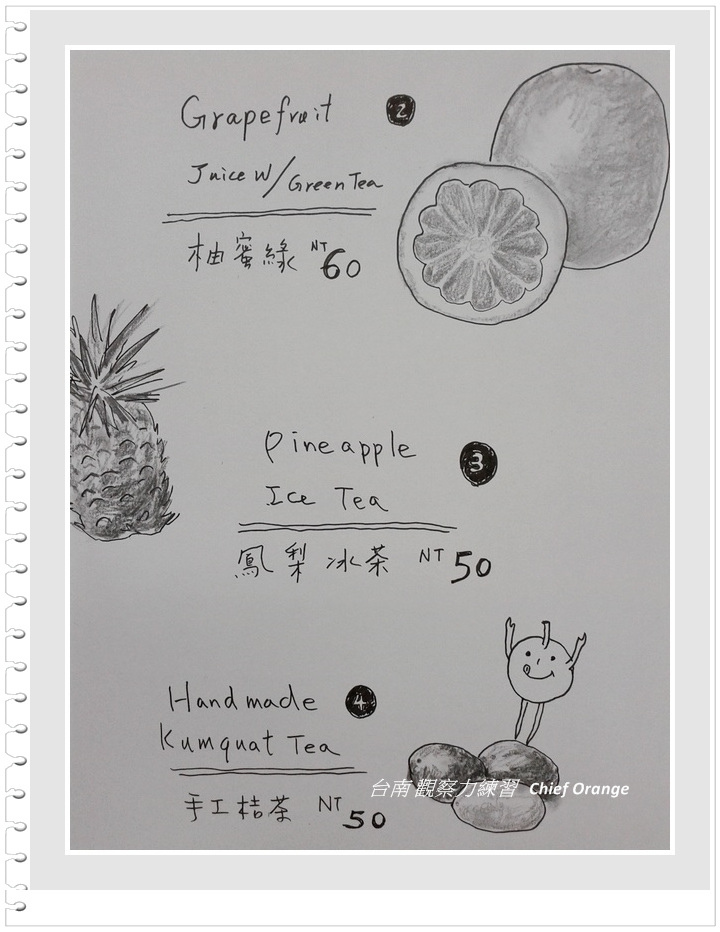 Grapefruit 2
Juice W/Green Tea
柚蜜綠 NT60
Pineapple 3
Ice Tea
鳳梨冰茶 NT50
Handmade 4
Kumquat Tea
手工桔茶 NT50
台南 觀察力練習 Chief Orange